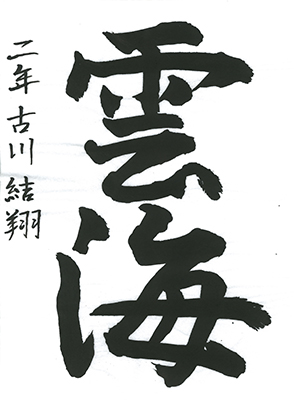 雲海
二年 古川 結翔